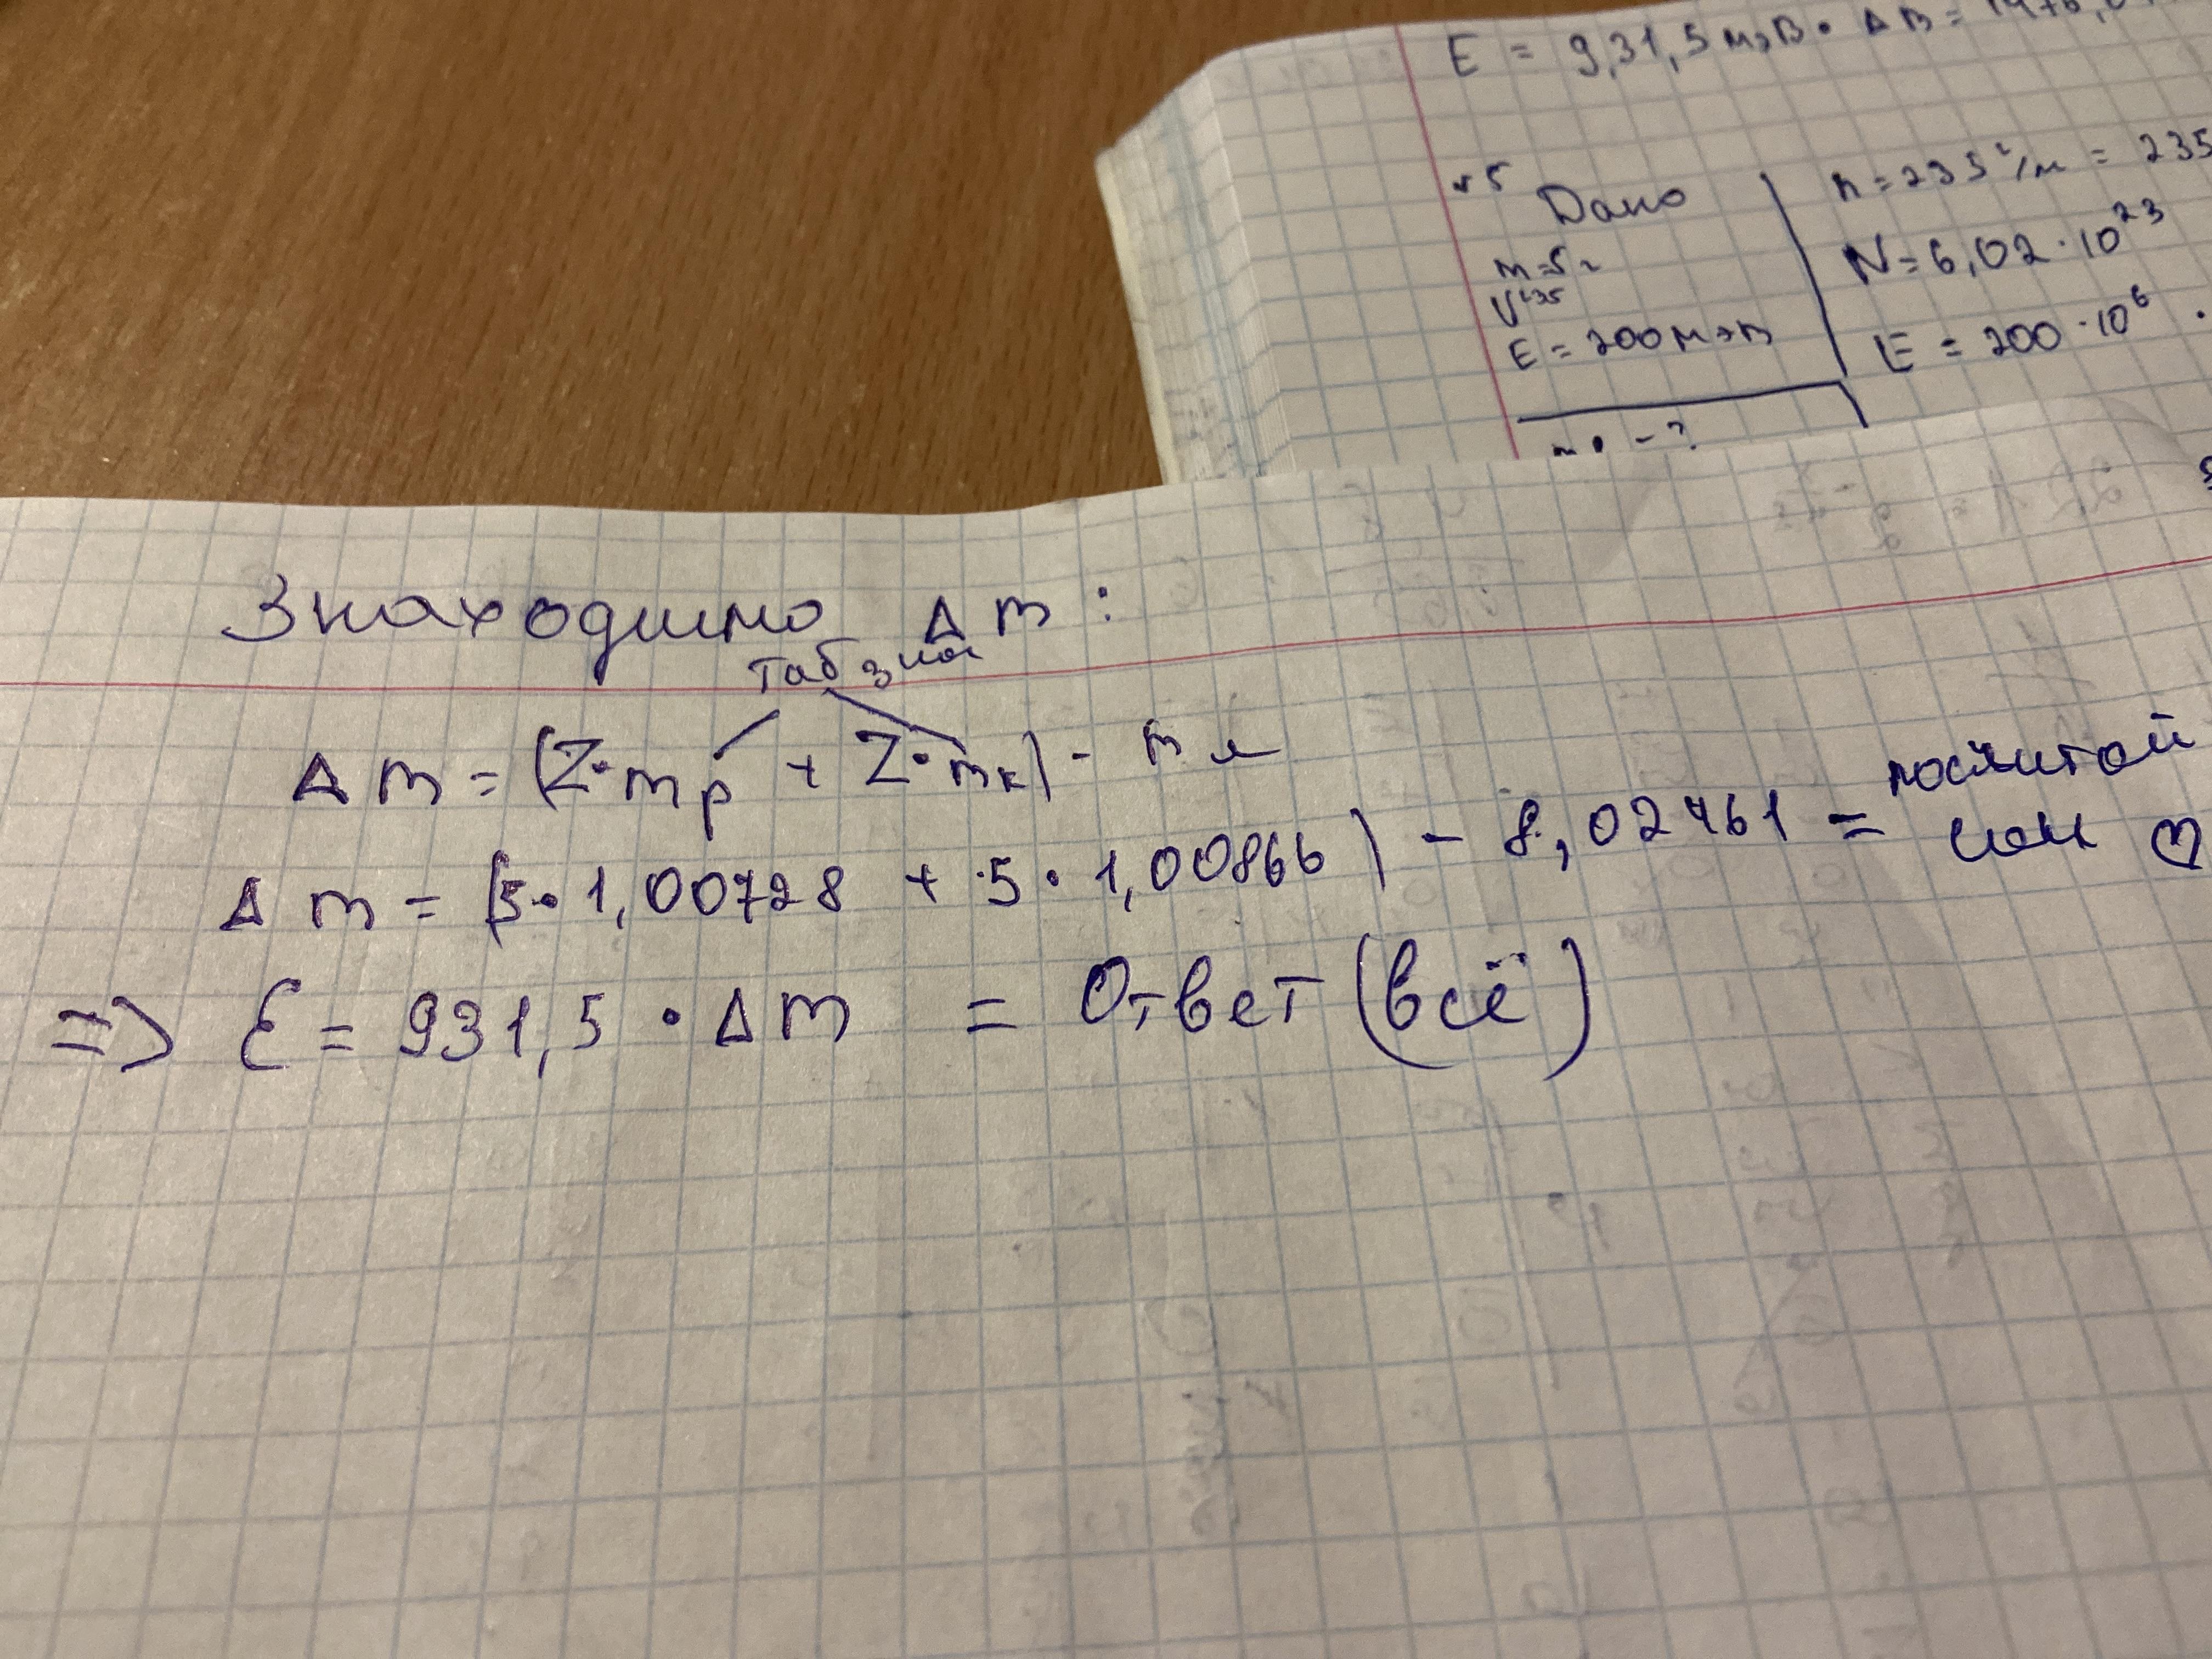 E = 9,31,5 мэВ · Δm = 1476,
№5 Дано
m=5г
U²³⁵
E = 200 мэВ
- ?
M=235 г/м = 235
N=6,02·10²³
E = 200·10⁶ ·
Знаходимо Δm:
таб знач
Δm = (Z·mp + Z·mn) - mя
Δm = (5·1,00728 + ·5·1,00866) - 8,02461 = посчитай
сам ♡
=> E = 931,5 · Δm = Ответ (всё)